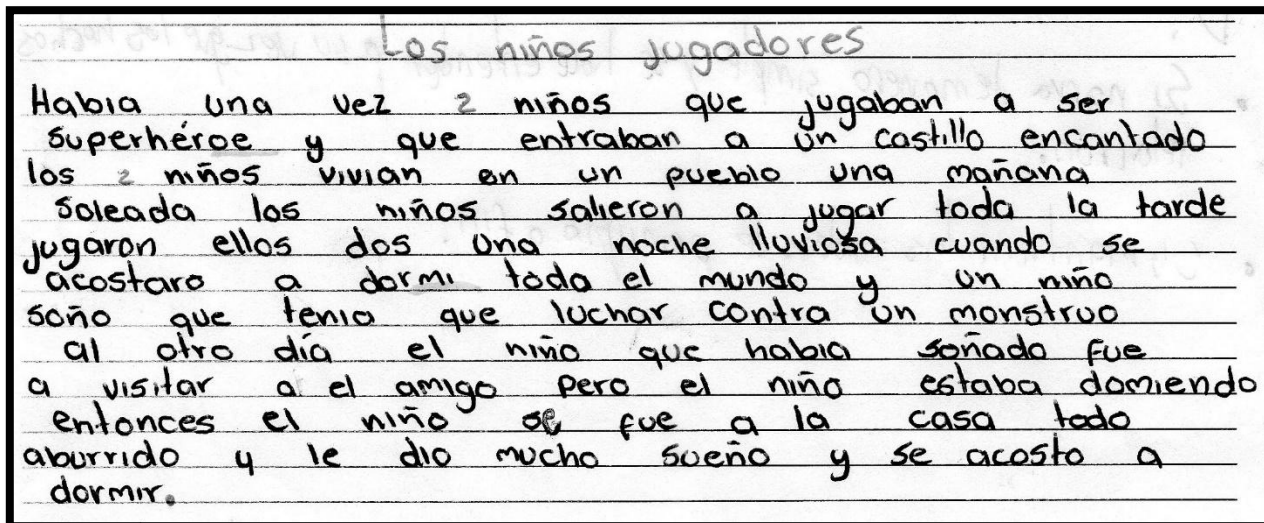 Los niños jugadores
Habia una vez 2 niños que jugaban a ser
superhéroe y que entraban a un castillo encantado
los 2 niños vivian en un pueblo una mañana
soleada los niños salieron a jugar toda la tarde
jugaron ellos dos una noche lluviosa cuando se
acostaro a dormi todo el mundo y un niño
soño que tenia que luchar contra un monstruo
al otro día el niño que habia soñado fue
a visitar a el amigo pero el niño estaba domiendo
entonces el niño se fue a la casa todo
aburrido y le dio mucho sueño y se acosto a
dormir.